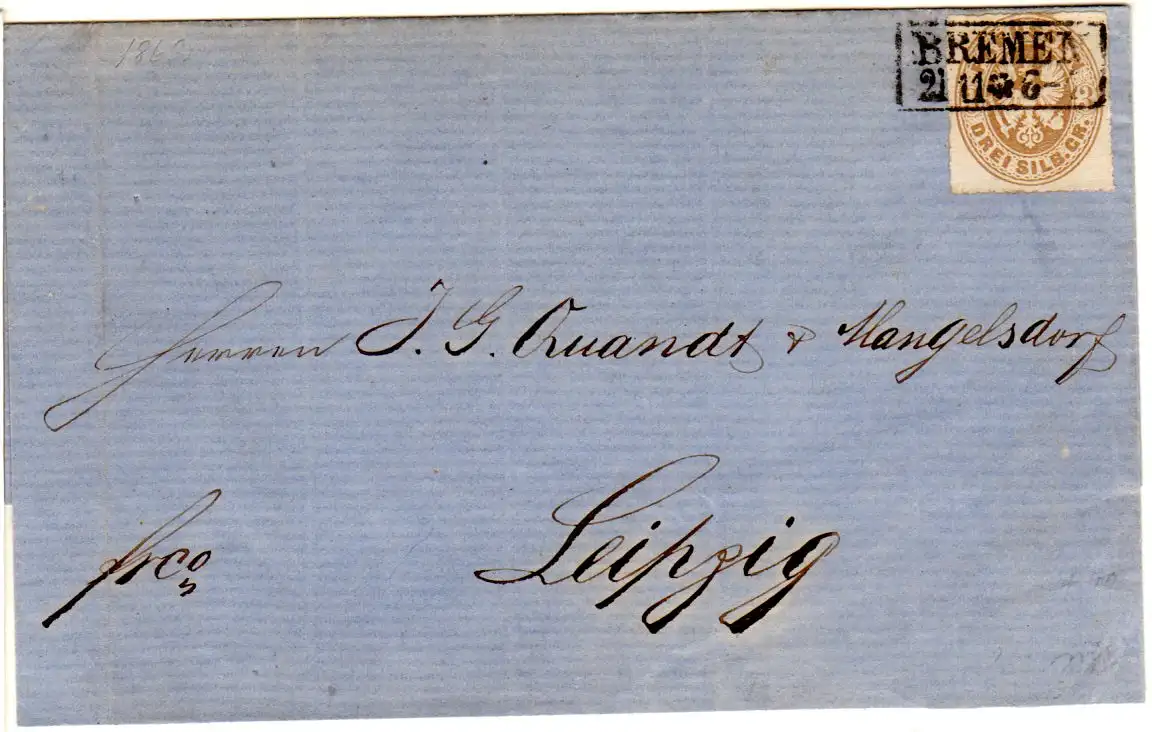 BREMEN
21 11 6-
DREI SILB. GR.
Herren J. G. Quandt & Mangelsdorf
frco
Leipzig